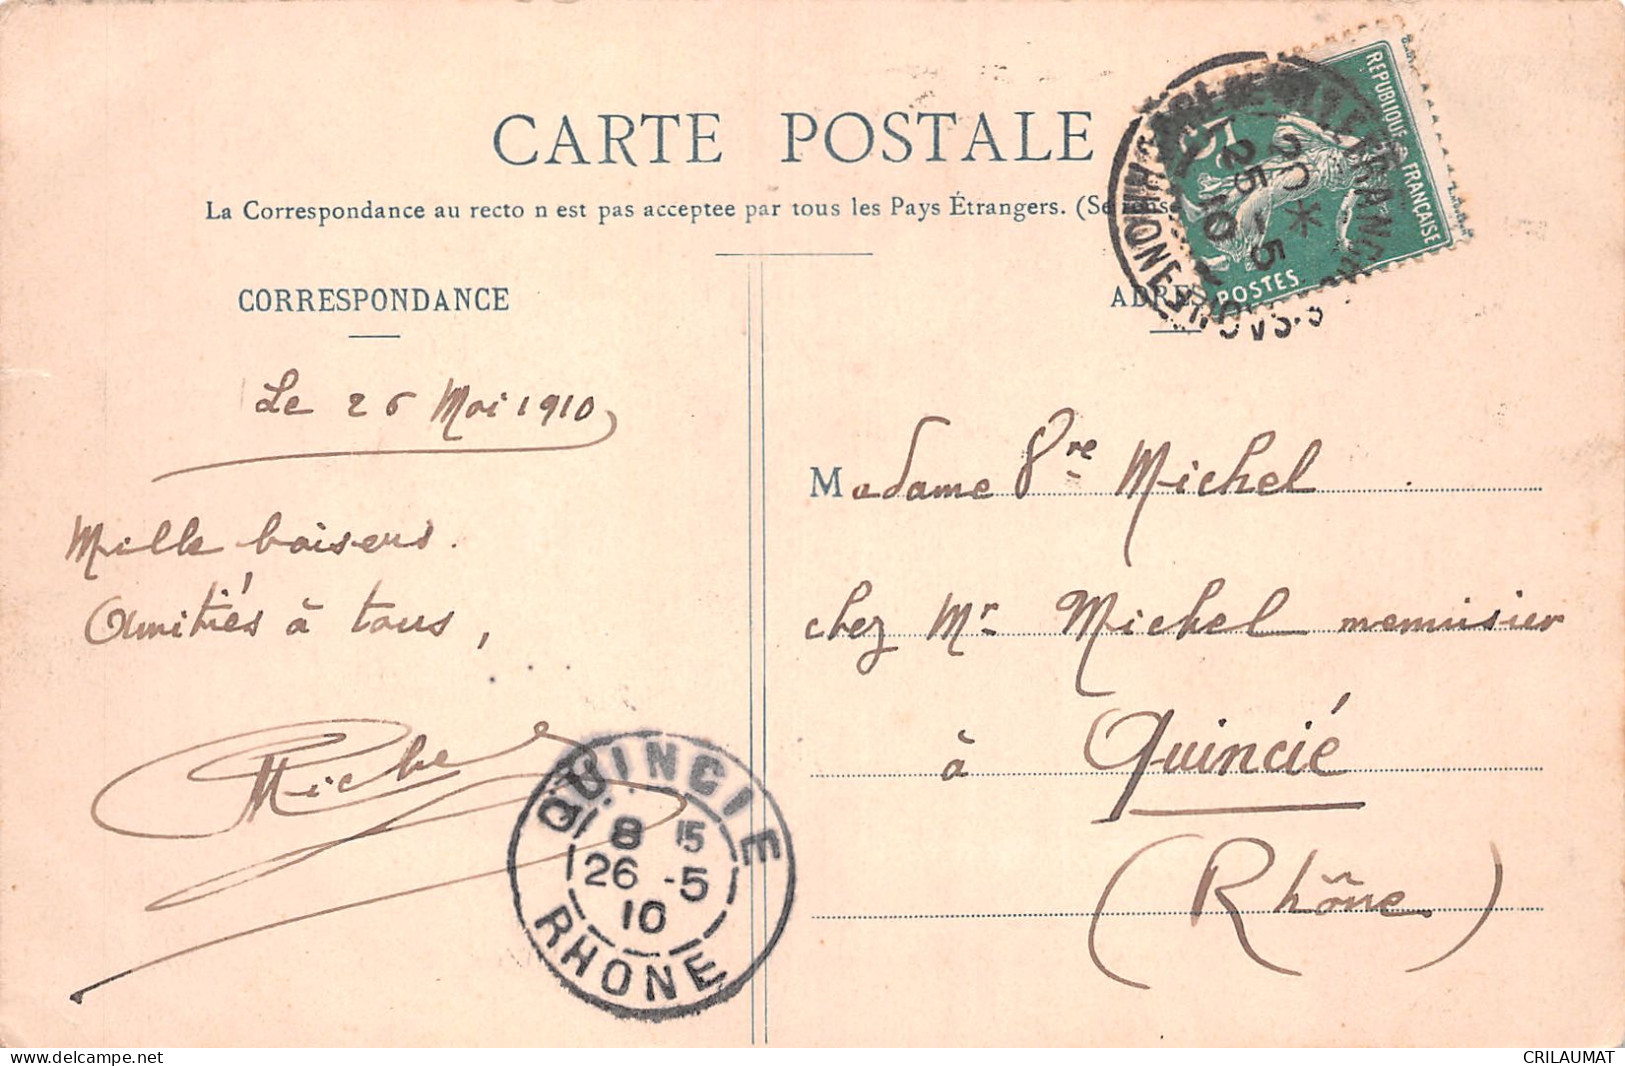 CARTE POSTALE
La Correspondance au recto n est pas acceptee par tous les Pays Étrangers. (Se rens
CORRESPONDANCE
ADRES
REPUBLIQUE FRANÇAISE
POSTES
20 *
25 -5
10
Le 26 Mai 1910
Mille baisers.
Amitiés à tous,
Michel
Madame Vve Michel
chez Mr Michel menuisier
à Quincié
(Rhône)
QUINCIE
8 15
26 -5
10
RHONE
delcampe.net
CRILAUMAT